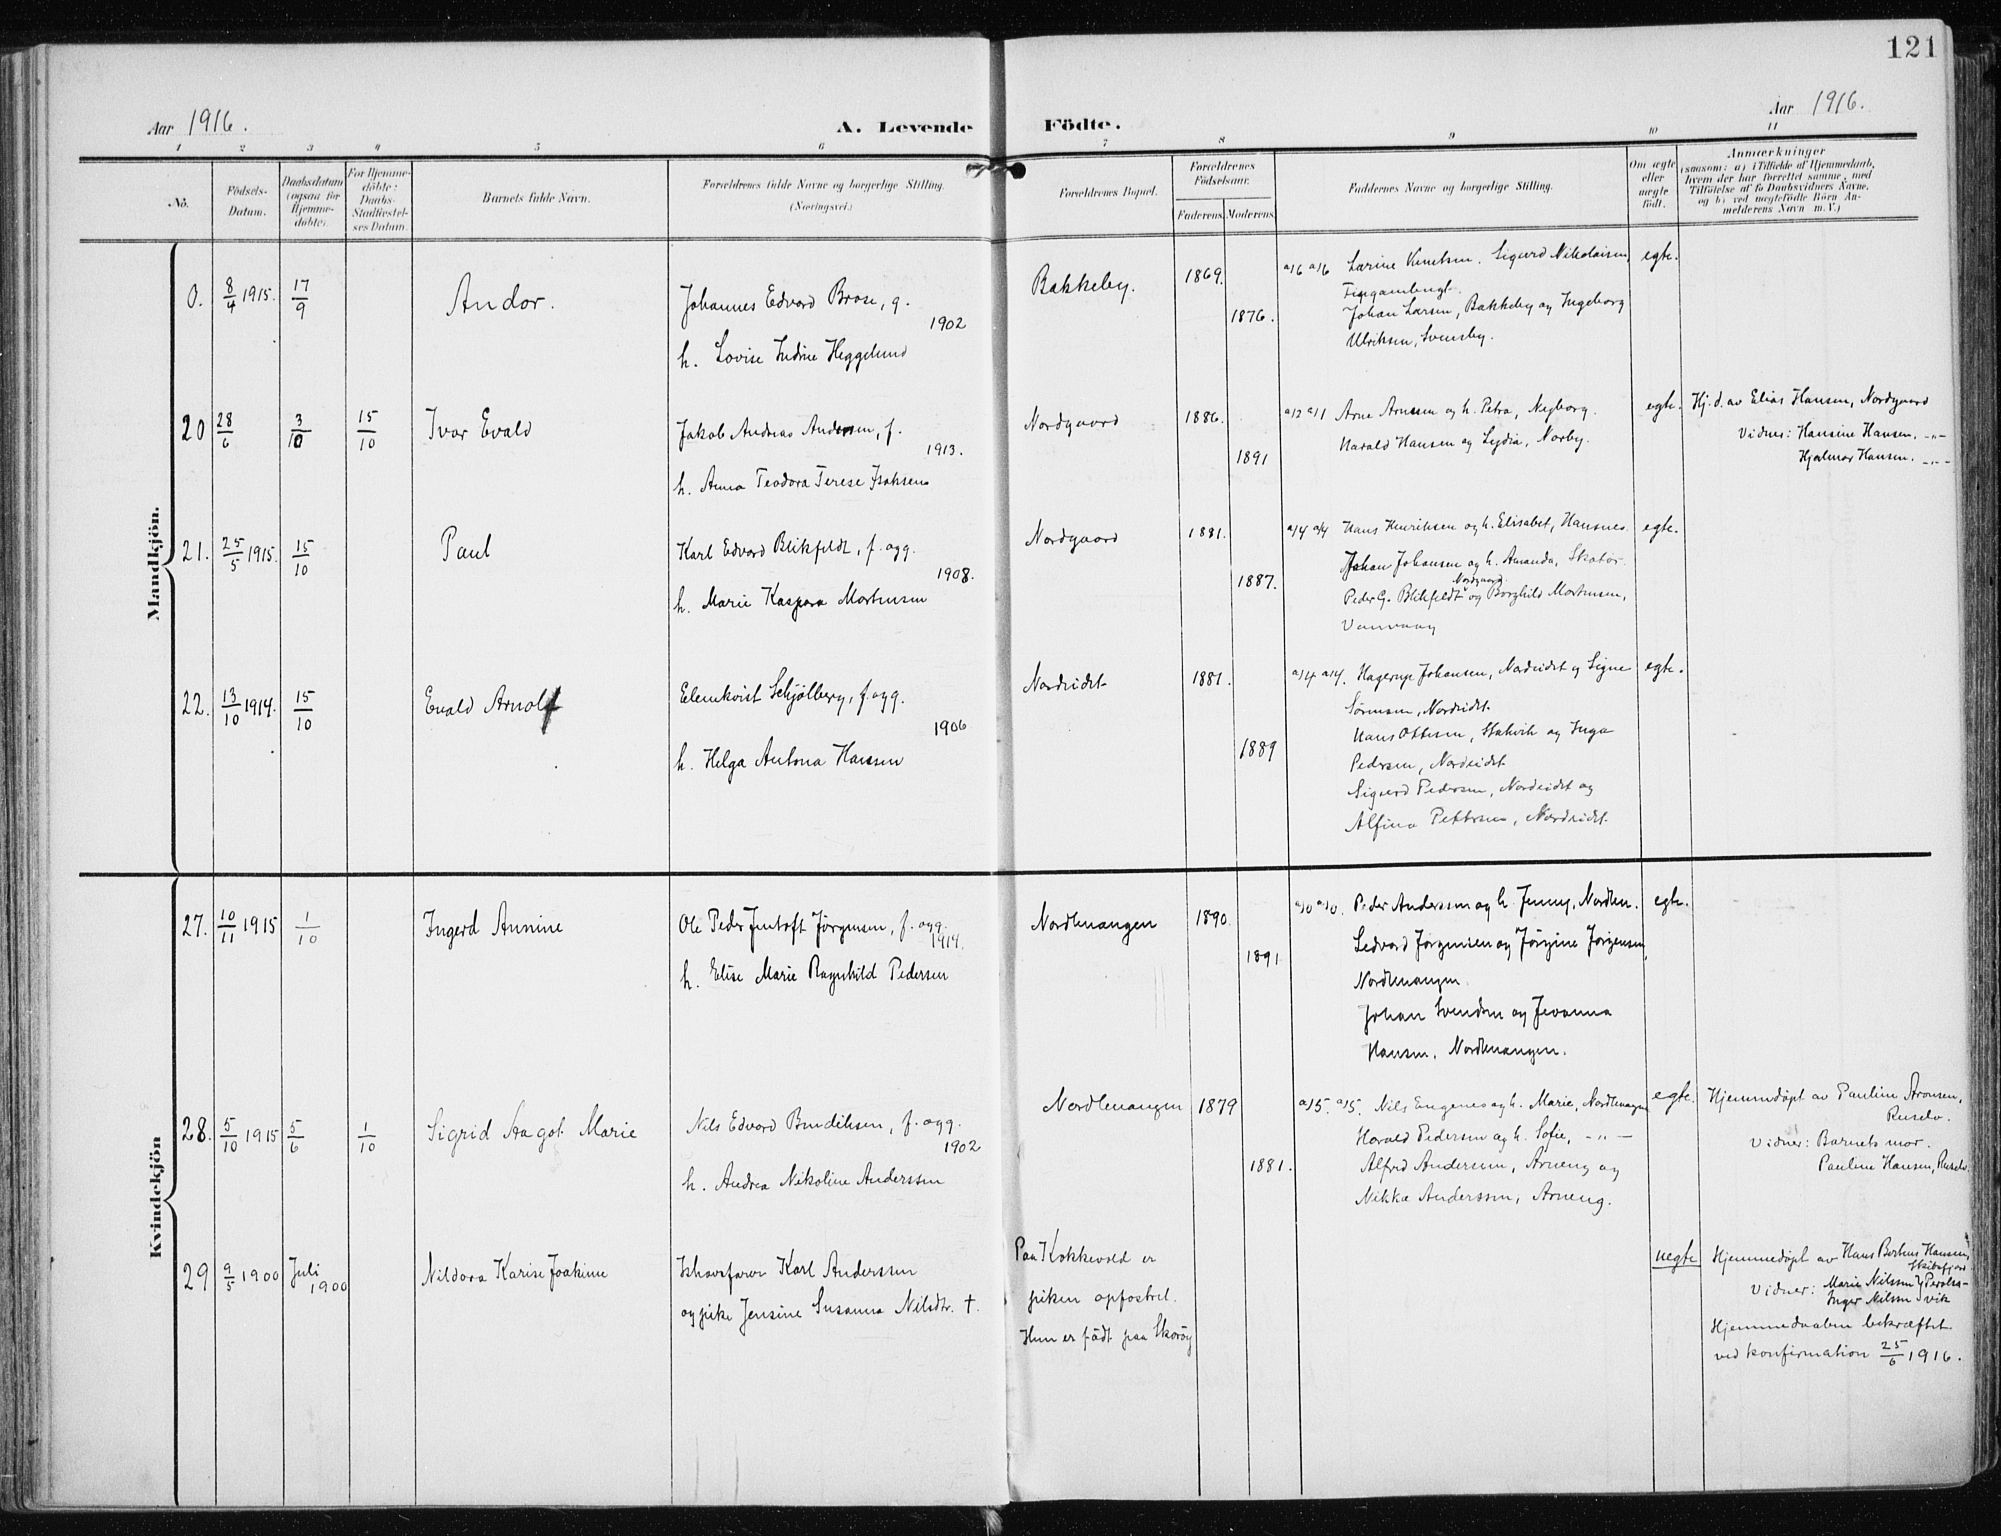 121
Aar 1916.
A. Levende Födte.
Aar 1916.
1 2 3 4 5 6 7 8 9 10 11
No.
Födsels-
Datum.
Daabsdatum
(ogsaa for
Hjemme-
döbte).
For Hjemme-
döbte:
Daabs-
Stadfæstel-
ses Datum
Barnets fulde Navn.
Forældrenes fulde Navne og borgerlige Stilling.
(Næringsvei.)
Forældrenes Bopæl.
Forældrenes
Födselsaar.
Faderens. Moderens.
Faddernes Navne og borgerlige Stilling.
Om ægte
eller
uægte
födt.
Anmærkninger
(saasom: a) i Tilfælde af Hjemmedaab,
hvem der har forrettet samme, med
Tilföielse af to Daabsvidners Navne,
og b) ved uægtefödte Börn An-
melderens Navn m. V.)
Mandkjön.
0. 8/4 1915. 17/9
Andor.
Johannes Edvard Brose, g.
1902
h. Lovise Indine Heggelund
Bakkeby.
1869.
1876.
a/6 a/6 Larine Knutsen. Sigurd Nikolaisen,
Johan Larsen, Bakkeby og Ingeborg
Ulriksen, Svensby.
egte.
20 28/6 3/10 15/10
Ivar Evald
Jakob Andreas Andersen, f.
1913.
h. Anna Teodora Terese Isaksen
Nordgaard
1886.
1891
a/2 a/1 Arne Arnesen og h. Petra, Nyborg.
Harald Hansen og Lydia, Norby.
egte.
Hj. d. av Elias Hansen, Nordgaard
Vidner: Hansine Hansen, -"-
Hjalmar Hansen. -"-
21. 25/5 1915. 15/10
Paul
Karl Edvard Blikfeldt, f. ogg.
1908.
h. Marie Kaspara Mortensen
Nordgaard
1881.
1887.
a/4 a/4 Hans Henriksen og h. Elisabet, Hansnes.
Johan Johansen og h. Amanda, Skatör.
Nordgaard
Peder G. Blikfeldt og Borghild Mortensen,
Vannvaag
egte.
22. 13/10 1914. 15/10
Evald Arnolf
Elenkvist Schjölberg, f. ogg.
1906
h. Helga Antona Hansen
Nordeidet
1881.
1889
a/4 a/4. Hagerup Johansen, Nordeidet og Signe
Sörensen, Nordeidet
Hans Ottesen, Stakvik og Inga
Pedersen, Nordeidet
Sigurd Pedersen, Nordeidet og
Alfina Pettersen, Nordeidet.
egte.
Kvindekjön
27. 10/11 1915 1/10
Ingerd Annine
Ole Peder Jentoft Jörgensen, f. ogg.
1914.
h. Elise Marie Ragnhild Pedersen
Nordlenangen
1890.
1891
a/10 a/10. Peder Anderssen og h. Jenny, Nordlen.
Ledvard Jörgensen og Jörgine Jörgensen,
Nordlenangen.
Johan Svendsen og Jevanna
Hansen. Nordlenangen.
egte.
28. 5/10 1915 5/6 1/10
Sigrid Aagot Marie
Nils Edvard Bendiksen, f. ogg.
1902
h. Andrea Nikoline Anderssen
Nordlenangen
1879
1881.
a/5. a/5. Nils Eugenes og h. Marie, Nordlenangen
Harald Pedersen og h. Sofie, -"-
Alfred Andersen, Arneng og
Nikka Anderssen, Arneng.
egte.
Hjemmedöpt av Pauline Aronsen,
Ruselv.
Vidner: Barnets mor.
Pauline Hansen, Ruselv.
29 9/5 1900 Juli
1900
Nildora Karise Joakime
Ishavsfarer Karl Anderssen
og pike Jensine Susanna Nilsdtr. †.
Paa Kokkevold er
piken opfostret.
Hun er födt paa Skoröy
uegte
Hjemmedöpt av Hans Berteus Hansen,
Skibsfjord
Vidner: Marie Nilssen
Inger Nilssen
Hjemmedaaben bekræftet
ved konfirmation 25/6 1916.